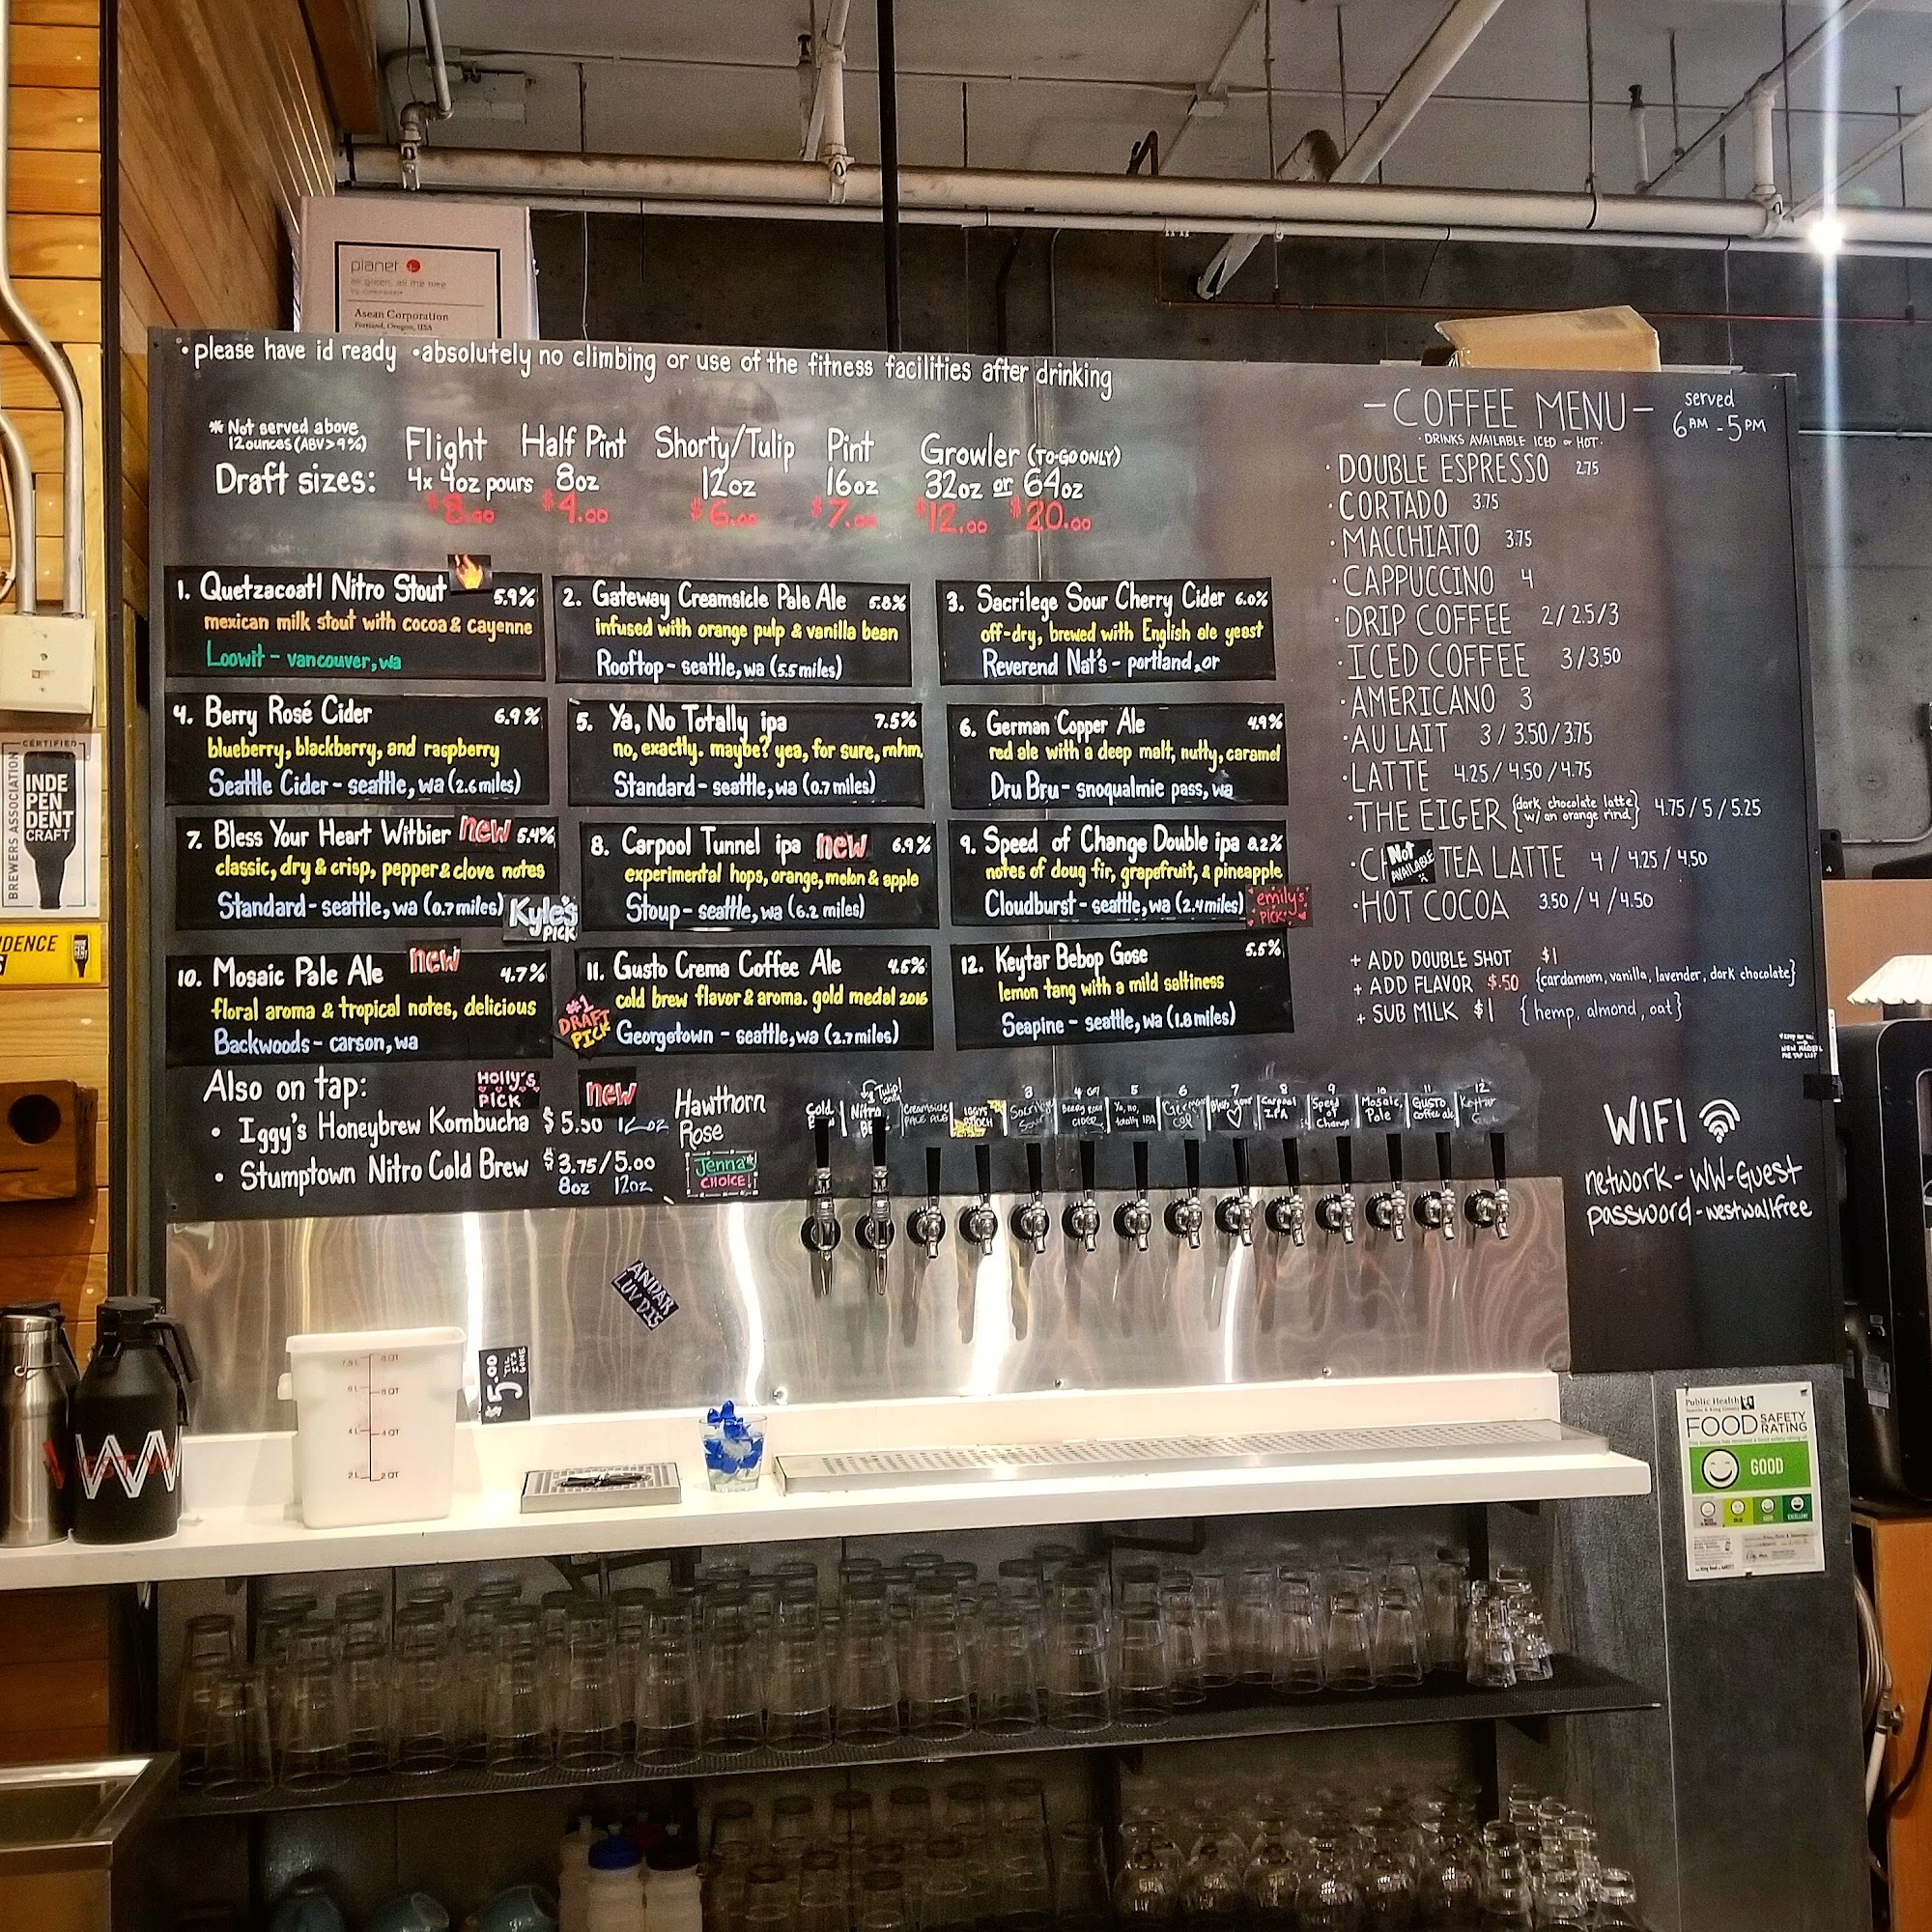 planet
all green, all the time
Asean Corporation
Portland, Oregon, USA
• please have id ready • absolutely no climbing or use of the fitness facilities after drinking
* Not served above
12 ounces (ABV > 9%)
Draft sizes:
Flight
4x 4oz pours
$8.00
Half Pint
8oz
$4.00
Shorty/Tulip
12oz
$6.00
Pint
16oz
$7.00
Growler (TO-GO ONLY)
32oz or 64oz
$12.00 $20.00
1. Quetzacoatl Nitro Stout 5.9%
mexican milk stout with cocoa & cayenne
Loowit - vancouver, wa
2. Gateway Creamsicle Pale Ale 5.8%
infused with orange pulp & vanilla bean
Rooftop - seattle, wa (5.5 miles)
3. Sacrilege Sour Cherry Cider 6.0%
off-dry, brewed with English ale yeast
Reverend Nat's - portland, or
4. Berry Rosé Cider 6.9%
blueberry, blackberry, and raspberry
Seattle Cider - seattle, wa (2.6 miles)
5. Ya, No Totally ipa 7.5%
no, exactly. maybe? yea, for sure, mhm.
Standard - seattle, wa (0.7 miles)
6. German Copper Ale 4.9%
red ale with a deep malt, nutty, caramel
Dru Bru - snoqualmie pass, wa
7. Bless Your Heart Witbier new 5.4%
classic, dry & crisp, pepper & clove notes
Standard - seattle, wa (0.7 miles)
Kyle's
PICK
8. Carpool Tunnel ipa new 6.9%
experimental hops, orange, melon & apple
Stoup - seattle, wa (6.2 miles)
9. Speed of Change Double ipa 8.2%
notes of doug fir, grapefruit, & pineapple
Cloudburst - seattle, wa (2.4 miles)
emily's
PICK!
10. Mosaic Pale Ale new 4.7%
floral aroma & tropical notes, delicious
Backwoods - carson, wa
11. Gusto Crema Coffee Ale 4.5%
cold brew flavor & aroma. gold medal 2016
Georgetown - seattle, wa (2.7 miles)
#1
DRAFT
PICK
12. Keytar Bebop Gose 5.5%
lemon tang with a mild saltiness
Seapine - seattle, wa (1.8 miles)
Also on tap:
HOLLY'S
PICK
new
• Iggy's Honeybrew Kombucha $5.50 12oz
Hawthorn
Rose
• Stumptown Nitro Cold Brew $3.75/5.00
8oz 12oz
Jenna's
CHOICE!
Tulip!
only
Cold
Nitro
Creamsicle
PALE ALE
3
4
CIDER
5
Ya, no,
totally IPA
6
7
Bless your
8
Carpool
IPA
9
Speed
of
Change
10
Mosaic
Pale
11
GUSTO
coffee ale
12
Keytar
-COFFEE MENU-
served
6AM - 5PM
· DRINKS AVAILABLE ICED or HOT ·
· DOUBLE ESPRESSO 2.75
· CORTADO 3.75
· MACCHIATO 3.75
· CAPPUCCINO 4
· DRIP COFFEE 2/2.5/3
· ICED COFFEE 3/3.50
· AMERICANO 3
· AU LAIT 3/3.50/3.75
· LATTE 4.25/4.50/4.75
· THE EIGER {dark chocolate latte w/ an orange rind} 4.75/5/5.25
NOT
AVAILABLE
TEA LATTE 4/4.25/4.50
· HOT COCOA 3.50/4/4.50
+ ADD DOUBLE SHOT $1
+ ADD FLAVOR $.50 {cardamom, vanilla, lavender, dark chocolate}
+ SUB MILK $1 {hemp, almond, oat}
WIFI
network - WW-Guest
password - westwallfree
CERTIFIED
BREWERS ASSOCIATION
INDE
PEN
DENT
CRAFT
DENCE
ANDAR
LUV DIS
$5.00
TIL
IT'S
GONE
8 QT
6 L
6 QT
4 L
4 QT
2 L
2 QT
W
Public Health
Seattle & King County
FOOD SAFETY RATING
GOOD